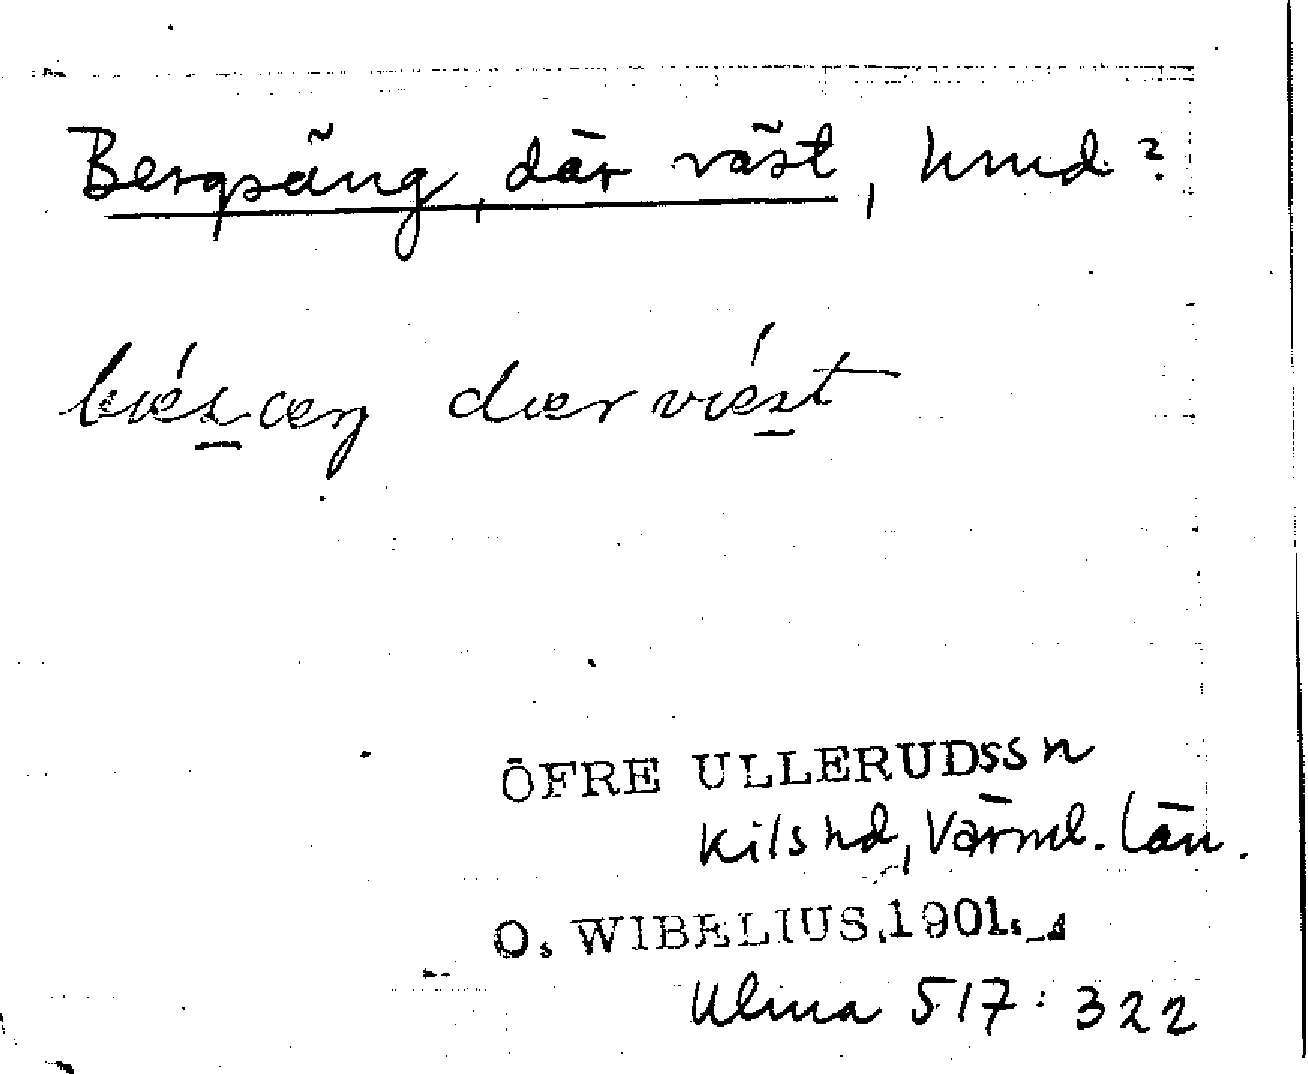 Bergsäng, där väst, hmd?
bǽsæŋ dær vǽst
ÖFRE ULLERUDSSN
Kils hd, Värml. län.
O. WIBELIUS, 1901.
Ulma 517:322